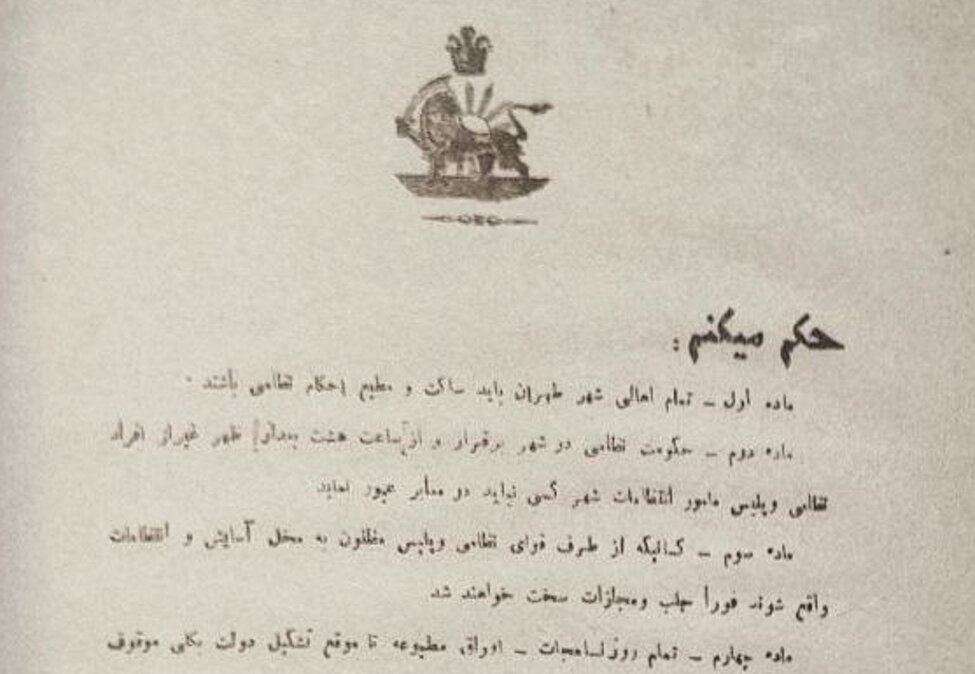 حکم میکنم :
ماده اول – تمام اهالی شهر طهران باید ساکت و مطیع احکام نظامی باشند .
ماده دوم – حکومت نظامی در شهر برقرار و از ساعت هشت بعداز ظهر غیراز افراد
نظامی و پلیس مامور انتظامات شهر کسی نباید در معابر عبور نماید
ماده سوم – کسانیکه از طرف قوای نظامی و پلیس مظنون به مخل آسایش و انتظامات
واقع شوند فوراً جلب و مجازات سخت خواهند شد
ماده چهارم – تمام روزنامجات – اوراق مطبوعه تا موقع تشکیل دولت بکلی موقوف